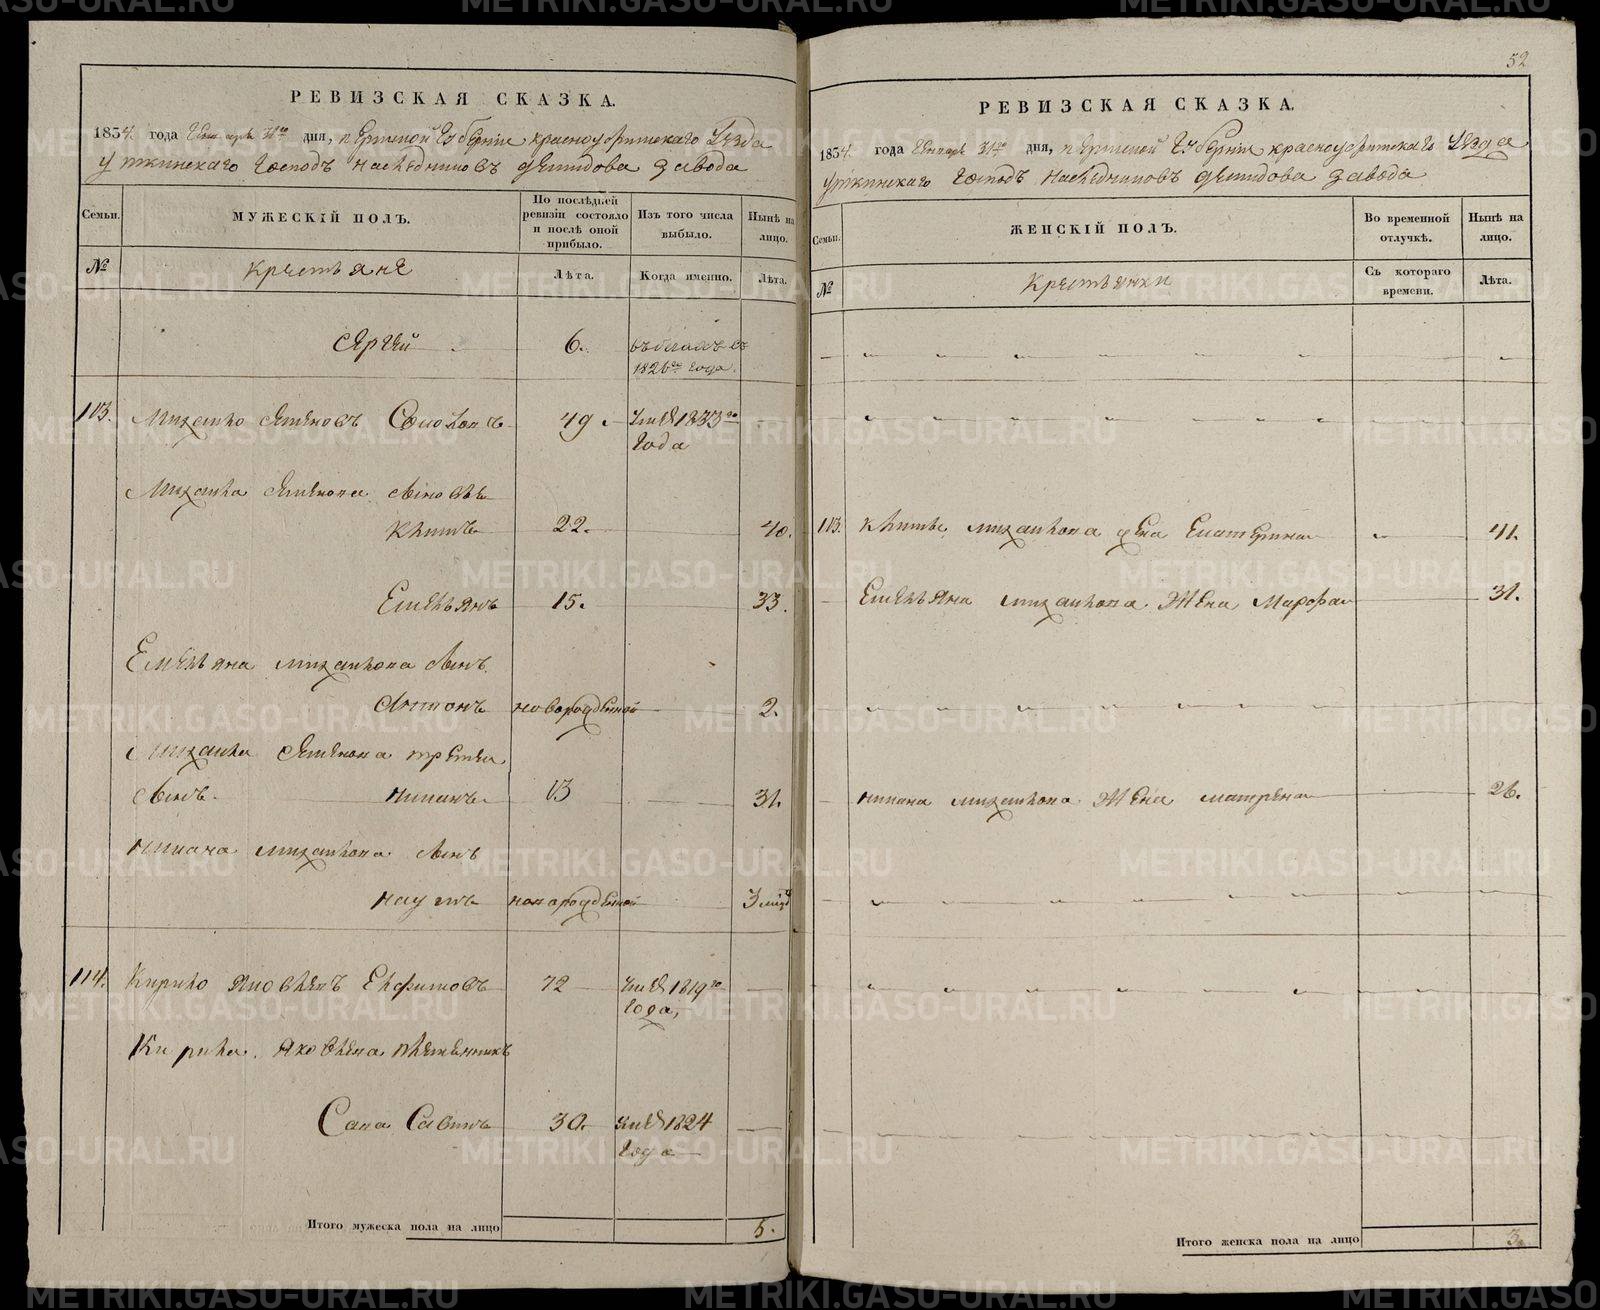 РЕВИЗСКАЯ СКАЗКА.
1834. года Генваря 31го дня, пермской Губернiи красноуфимскаго Уезда
Уткинскаго Господъ наследниковъ демидова завода
Семьи.
МУЖЕСКІЙ ПОЛЪ.
По послѣдней ревизіи состояло и послѣ оной прибыло.
Изъ того числа выбыло.
Нынѣ на лицо.
№
крестьяне
Лѣта.
Когда именно.
Лѣта.
Сергей 6. въ бегахъ съ
1826го года.
113. Михайло Семеновъ 49. Умре 1833го
года
Михайла Семенова сыновье
22. 40.
Емельянъ 15. 33.
Емельяна Михайлова сынъ
Антонъ новорожденной 2.
Михайла Семенова третей
сынъ 13 31.
Михайлова сынъ
Наумъ новорожденной
114. Кирило Яковлевъ Ефимовъ 72 Умре 1819го
года,
Кирила Яковлева племянникъ
Сава Савинъ 30. умре 1824
года
Итого мужеска пола на лицо 5.
52
РЕВИЗСКАЯ СКАЗКА.
1834. года Генваря 31го дня, пермской Губернiи красноуфимскаго Уезда
Уткинскаго Господъ наследниковъ демидова завода
Семьи.
ЖЕНСКІЙ ПОЛЪ.
Во временной отлучкѣ.
Нынѣ на лицо.
№
Крестьянки
Съ котораго времени.
Лѣта.
113. Михайлова жена Екатерина 41.
Емельяна Михайлова жена Марфа 31.
Михайлова жена Матрена 26.
Итого женска пола на лицо 3.
METRIKI.GASO-URAL.RU